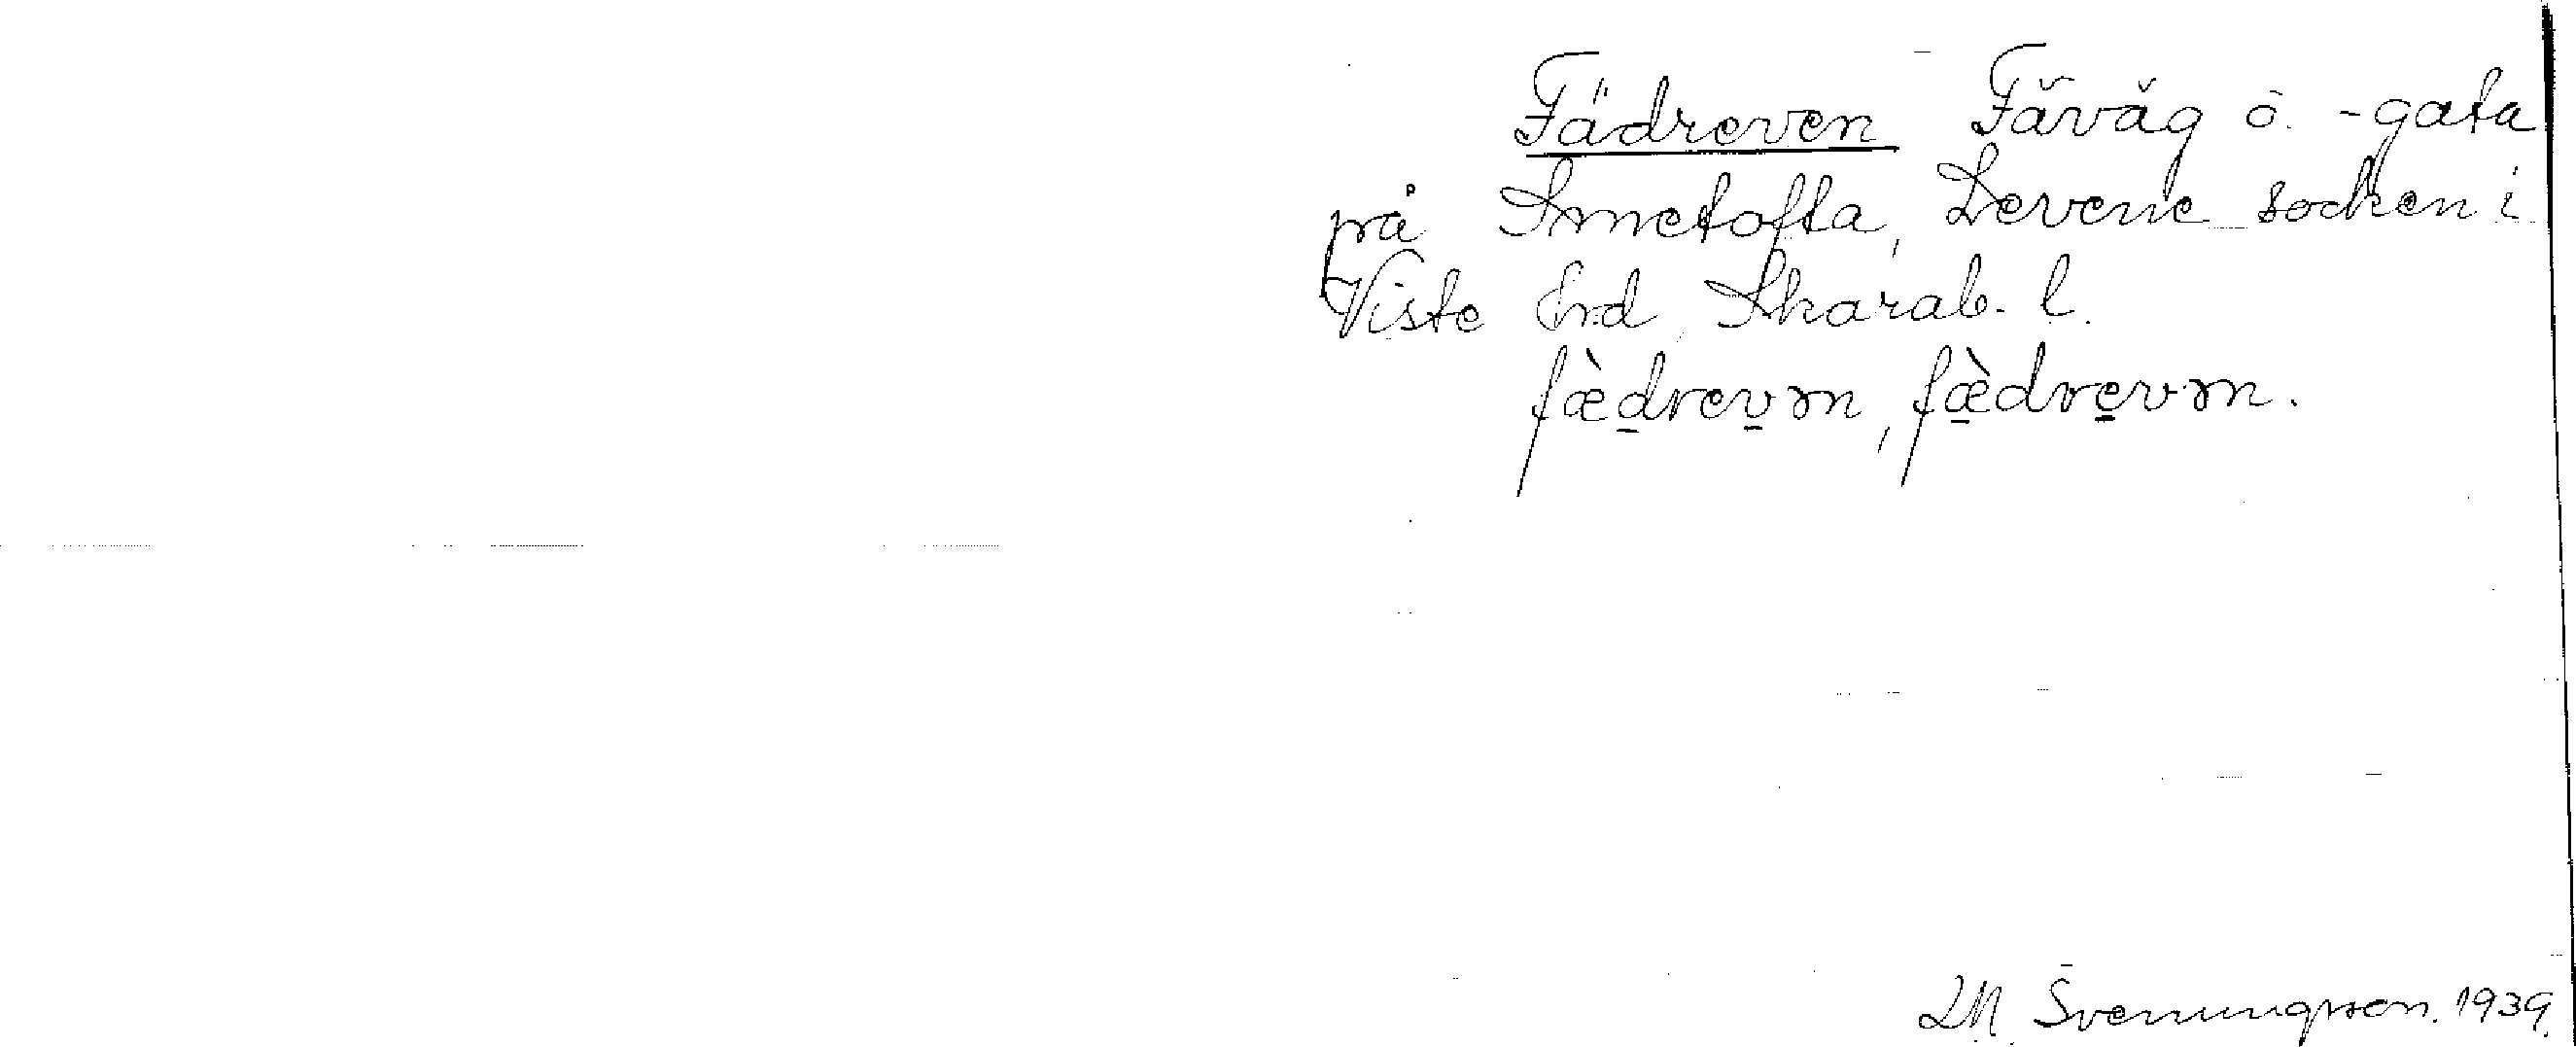 Fädreven Fäväg o. -gata
på Smetofta, Levene socken i
Viste hd, Skarab. l.
fæ̀drevən, fæ̀drevən.
LM Svenungsson. 1939.